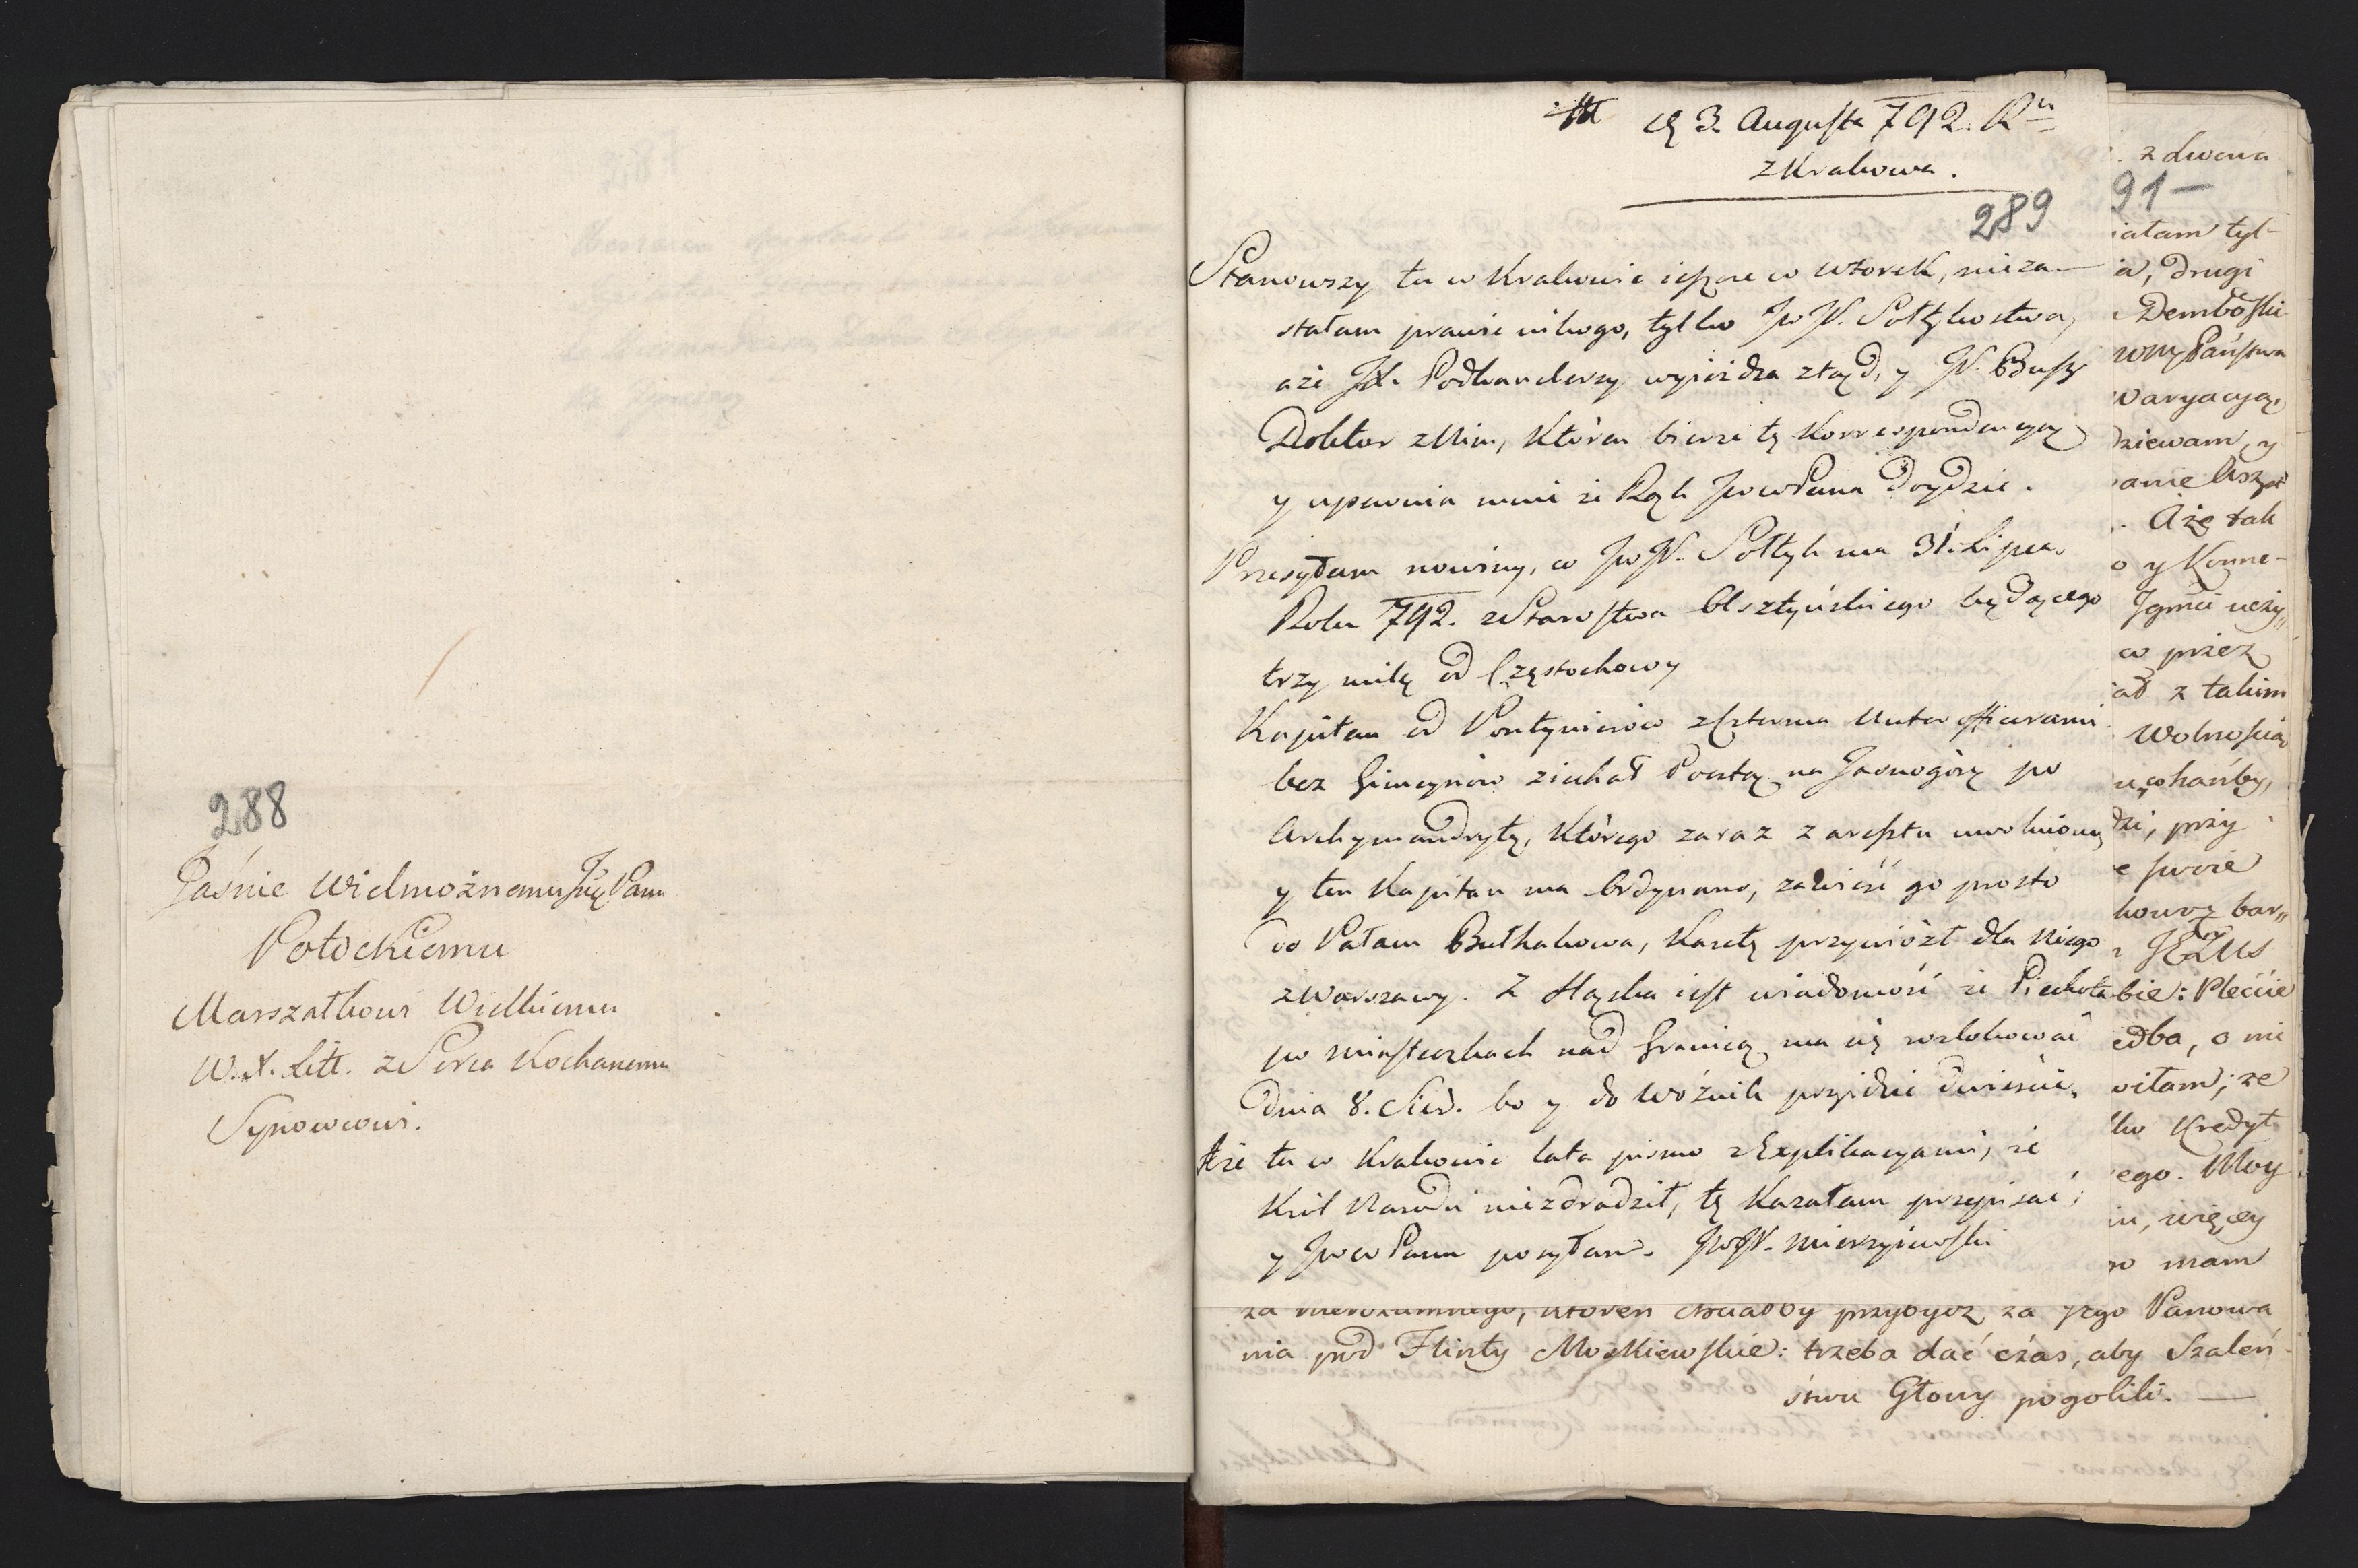 288
Jaśnie Wielmożnemu Jmć Panu
Potockiemu
Marszałkowi Wielkiemu
W. X. Litt. z Serca Kochanemu
Synowcowi.
3. Augusta 792. Ru
z Krakowa.
289
Stanowszy tu w Krakowie ieszcze w wtorek, nieza-
stałam prawie nikogo, tylko JwJP. Sołtykostwa,
aże JX. Podkanclerzy wyieżdza ztąd, y JP.
Doktor z Nim, Któren bierze tę Korrespondencyą
y upewnia mnie że Rąk JwwPana doydzie.
Przesyłam nowiny, co JwJP. Sołtyk ma 31. Lipca
Roku 792. z Starostwa Olsztyńskiego będącego
trzy milę od Częstochowy
Kapitan od Pontynierów z czterma Unter officerami
bez Gimeynów ziechał Pocztą na Jasnogórę po
Archymandrytę, Którego zaraz z aresztu uwolniono
y ten Kapitan ma Ordynans, zawieść go prosto
do Pałacu Bułhakowa, Karetę przywiózł dla Niego
z Warszawy. Z Sląska iest wiadomość że Piechota
po miasteczkach nad Granicą ma się rozlokować
Dnia 8. Sier. bo y do Woźnik przyidzie dwieście.
Aże tu w Krakowie lata pismo z Explikacyami, że
Król Narodu niezdradził, tę Kazałam przepisać,
y JwwPanu posyłam. JwJP. Mierzyiewski
za nierozumnego, któren chciałby przybydz za Jego Panowa
nia pod Flinty Moskiewskie: trzeba dać czas, aby Szaleń-
stwu Głowy pogolili. —
z Lwowa
91 —
iałam tyl-
ia, drugi
Dembôski
Państwa
waryacyą,
dziewam, y
. Aże tak
o y Konne-
Jgmći uczy„
co przez
ał z takim
Wolnością
hańby,
dzi, przy
e swoie
bar„
JEZUS
bie: Plećie
edba, o nie
witam; ze
lko Kredyt
ego. Moy
iu, więcey
o mam